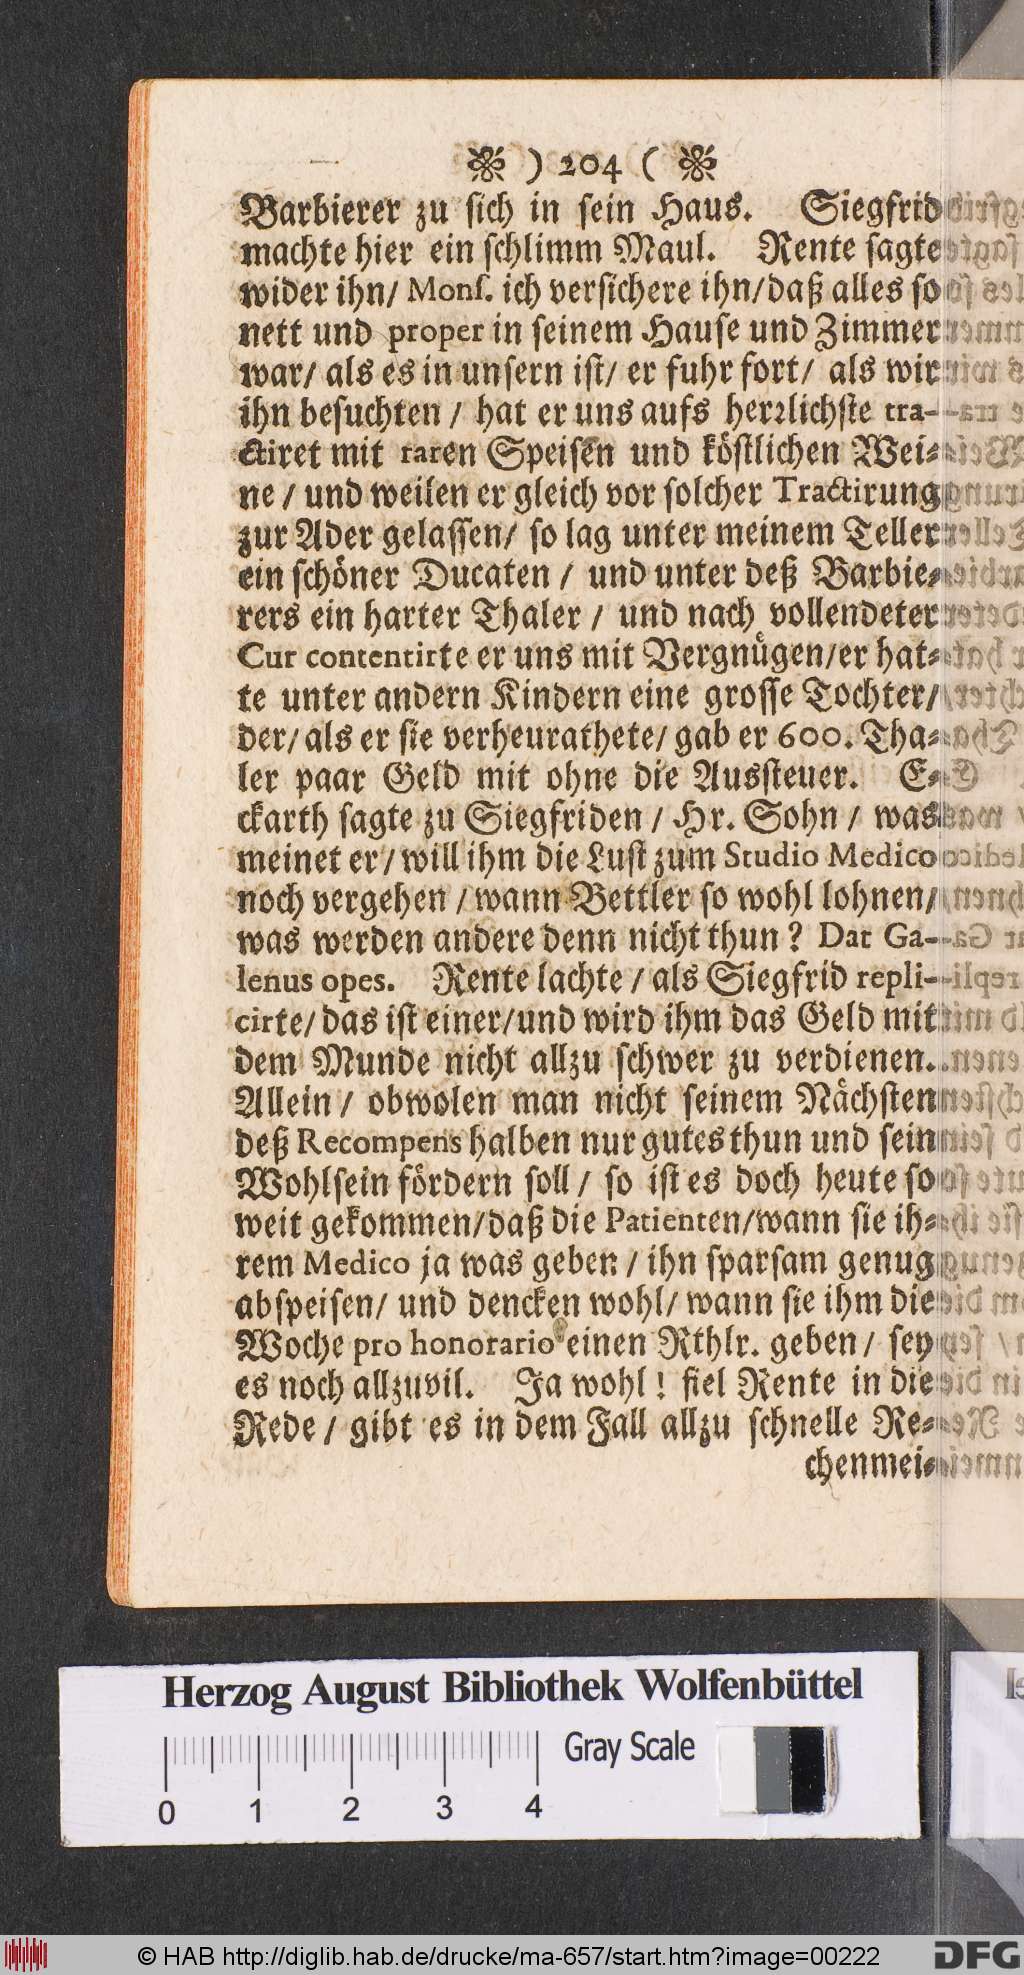 ) 204 (
Barbierer zu sich in sein Haus. Siegfrid
machte hier ein schlimm Maul. Rente sagte
wider ihn/ Monſ. ich versichere ihn/daß alles so
nett und proper in seinem Hause und Zimmer
war/ als es in unsern ist/ er fuhr fort/ als wir
ihn besuchten / hat er uns aufs herꝛlichste tra-
ctiret mit raren Speisen und köstlichen Wei-
ne / und weilen er gleich vor solcher Tractirung
zur Ader gelassen/ so lag unter meinem Teller
ein schöner Ducaten / und unter deß Barbie-
rers ein harter Thaler / und nach vollendeter
Cur contentirte er uns mit Vergnügen/er hat-
te unter andern Kindern eine grosse Tochter/
der/ als er sie verheurathete/ gab er 600. Tha-
ler paar Geld mit ohne die Aussteuer. E-
ckarth sagte zu Siegfriden / Hr. Sohn / was
meinet er/ will ihm die Lust zum Studio Medico
noch vergehen / wann Bettler so wohl lohnen/
was werden andere denn nicht thun? Dat Ga-
lenus opes. Rente lachte / als Siegfrid repli-
cirte/ das ist einer/und wird ihm das Geld mit
dem Munde nicht allzu schwer zu verdienen.
Allein / obwolen man nicht seinem Nächsten
deß Recompens halben nur gutes thun und sein
Wohlsein fördern soll / so ist es doch heute so
weit gekommen/daß die Patienten/wann sie ih-
rem Medico ja was geben / ihn sparsam genug
abspeisen/ und dencken wohl/ wann sie ihm die
Woche pro honorario einen Rthlr. geben / sey
es noch allzuvil. Ja wohl! fiel Rente in die
Rede / gibt es in dem Fall allzu schnelle Re-
chenmei-
Herzog August Bibliothek Wolfenbüttel
Gray Scale
0 1 2 3 4
© HAB http://diglib.hab.de/drucke/ma-657/start.htm?image=00222
DFG